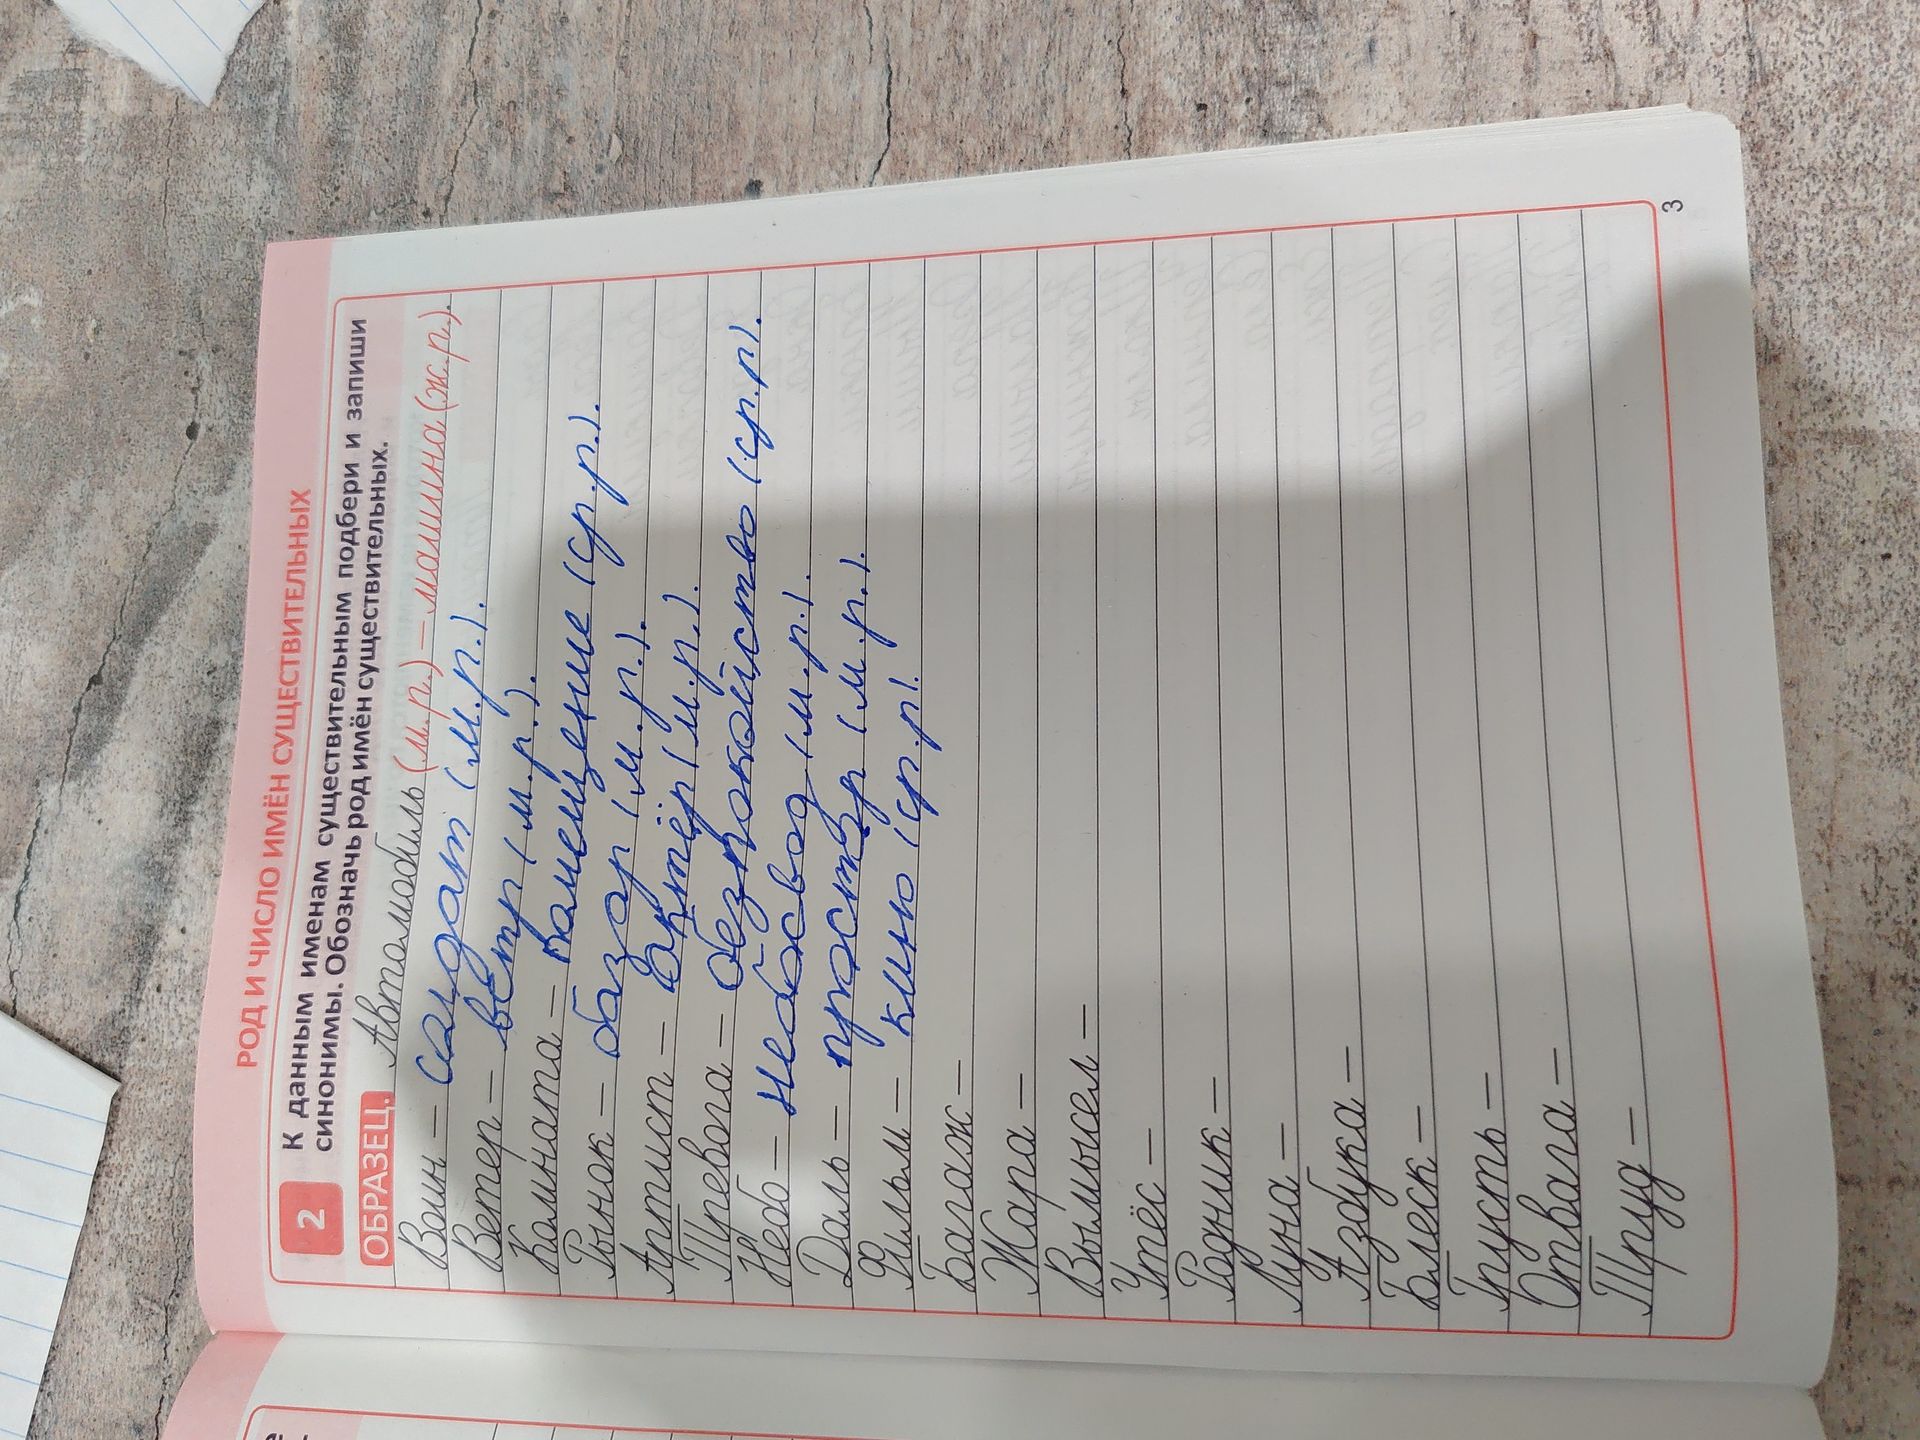 РОД И ЧИСЛО ИМЁН СУЩЕСТВИТЕЛЬНЫХ
2 К данным именам существительным подбери и запиши
синонимы. Обозначь род имён существительных.
ОБРАЗЕЦ. Автомобиль (м.р.) – машина (ж.р.).
Воин – салдат (м.р.).
Ветер – ветр (м.р.).
Комната – памещение (ср.р.).
Рынок – базар (м.р.).
Артист – актёр (м.р.).
Тревога – безпокойство (ср.р).
Небо – небосвод (м.р.).
Даль – простор (м.р.).
Фильм – кино (ср.р).
Багаж –
Жара –
Вымысел –
Утёс –
Родник –
Луна –
Азбука –
Блеск –
Грусть –
Отвага –
Труд –
3